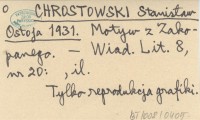 o CHROSTOWSKI Stanisław
Ostoja 1931. Motyw z Zako-
panego. - Wiad. Lit. 8,
nr 20: , il.
Tylko reprodukcja grafiki.